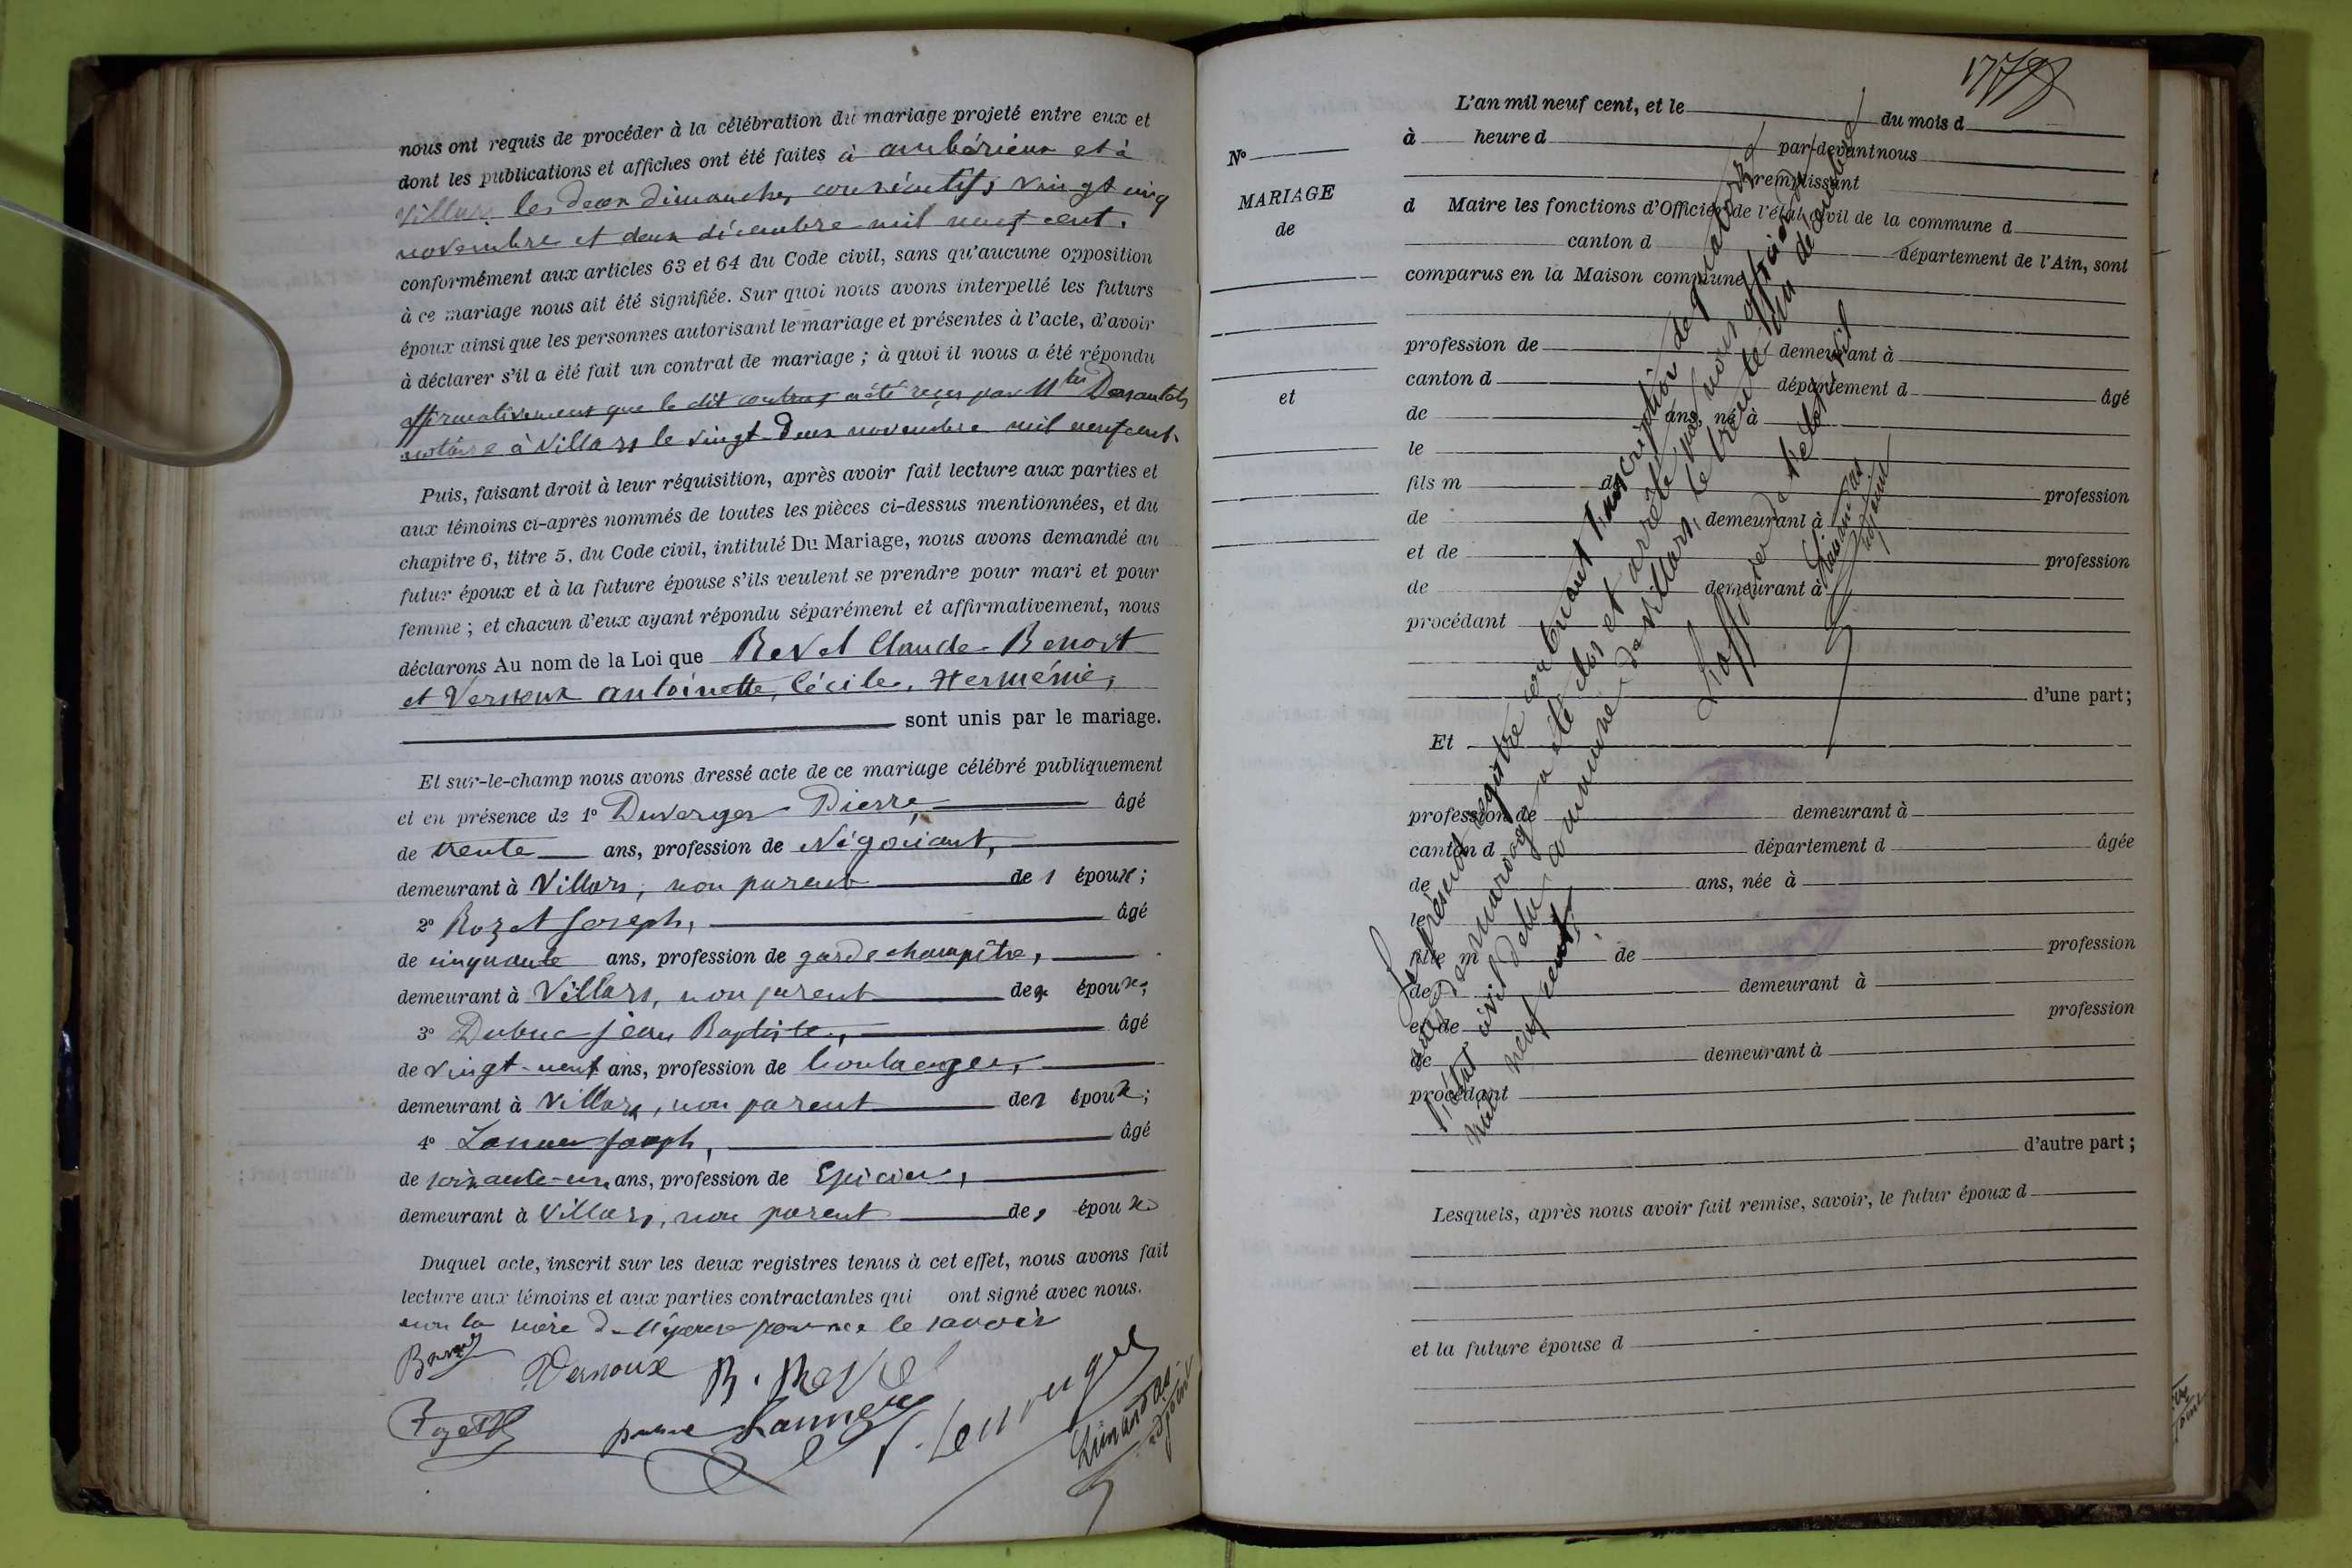 nous ont requis de procéder à la célébration du mariage projeté entre eux et
dont les publications et affiches ont été faites à ambérieux et à
Villars les deux dimanches consécutifs vingt cinq
novembre et deux décembre mil neuf cent.
conformément aux articles 63 et 64 du Code civil, sans qu'aucune opposition
à ce mariage nous ait été signifiée. Sur quoi nous avons interpellé les futurs
époux ainsi que les personnes autorisant le mariage et présentes à l'acte, d'avoir
à déclarer s'il a été fait un contrat de mariage ; à quoi il nous a été répondu
affirmativement que le dit contrat a été reçu par
notaire à Villars le vingt-deux novembre mil neuf cent.
Puis, faisant droit à leur réquisition, après avoir fait lecture aux parties et
aux témoins ci-après nommés de toutes les pièces ci-dessus mentionnées, et du
chapitre 6, titre 5, du Code civil, intitulé Du Mariage, nous avons demandé au
futur époux et à la future épouse s'ils veulent se prendre pour mari et pour
femme ; et chacun d'eux ayant répondu séparément et affirmativement, nous
déclarons Au nom de la Loi que Revel Claude-Benoit
et Vernoux antoinette, Cécile, Herménie,
sont unis par le mariage.
Et sur-le-champ nous avons dressé acte de ce mariage célébré publiquement
et en présence de 1° Duverger Pierre, âgé
de trente ans, profession de Négociant,
demeurant à Villars, non parent de s époux ;
2° Rozet Joseph, âgé
de cinquante ans, profession de garde champêtre,
demeurant à Villars, non parent des époux ;
3° Dubuc jean Baptiste, âgé
de vingt-neuf ans, profession de boulanger,
demeurant à Villars, non parent des époux ;
4° Lanner Joseph, âgé
de soixante-un ans, profession de Epicier,
demeurant à Villars, non parent des époux
Duquel acte, inscrit sur les deux registres tenus à cet effet, nous avons fait
lecture aux témoins et aux parties contractantes qui ont signé avec nous.
non la mère de l'épouse pour ne le savoir
Vernoux B. Revel
Lanner
adjoint
177
L'an mil neuf cent, et le du mois d
à heure d par-devant nous
remplissant
d Maire les fonctions d'Officier de l'état civil de la commune d
canton d département de l'Ain, sont
comparus en la Maison commune
N°
MARIAGE
de
et
profession de demeurant à
canton d département d âgé
de ans, né à
le
fils m de profession
de demeurant à
et de profession
de demeurant à
procédant
d'une part;
Et
profession de demeurant à
canton d département d âgée
de ans, née à
le
fille m de profession
de demeurant à
et de profession
de demeurant à
procédant
d'autre part ;
Lesquels, après nous avoir fait remise, savoir, le futur époux d
et la future épouse d
Le présent registre contenant transcription de quatorze
actes de mariage a été clos et arrêté par nous officier de
l'état civil de la commune de Villars, le trente un décembre
mil neuf cent.
L'officier de l'état civil
adjoint